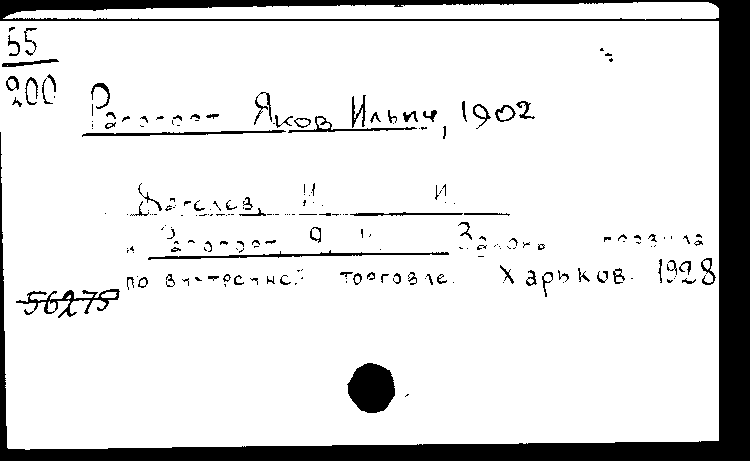 55
200
Рапопорт Яков Ильич, 1902
И. И.
и Рапопорт, Я. И. Законы правила
по внутренней торговле. Харьков. 1928
56275